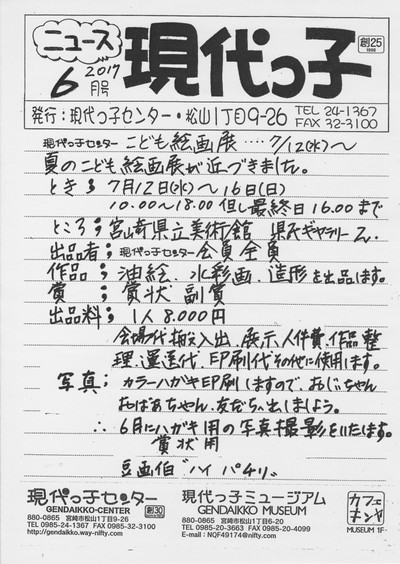 ニュース
現代っ子
創25
1998
2017
6月号
発行:現代っ子センター・松山1丁目9-26 TEL 24-1367
FAX 32-3100
現代っ子センター こども絵画展‥‥7/12(水)〜
夏のこども絵画展が近づきました。
とき; 7月12日(水)〜16日(日)
10.00〜18.00 但し最終日16.00まで
ところ; 宮崎県立美術館 県民ギャラリー2.
出品者; 現代っ子センター会員全員
作品; 油絵.水彩画.造形を出品します。
賞; 賞状 副賞
出品料; 1人8.000円
会場代 搬入出.展示.人件費.作品整
理.運送代.印刷代その他に使用します。
写真; カラーハガキ印刷しますので、おじいちゃん
おばあちゃん.友だちへ出しましよう。
∴ 6月にハガキ用の写真撮影をいたします。
賞状用
豆画伯"ハイ パチリ"
現代っ子センター
GENDAIKKO-CENTER
創30
880-0865 宮崎市松山1丁目9-26
TEL 0985-24-1367 FAX 0985-32-3100
http://gendaikko.way-nifty.com/
現代っ子ミュージアム
GENDAIKKO MUSEUM
880-0865 宮崎市松山1丁目6-20
TEL 0985-20-3663 FAX 0985-20-4099
E-mail:NQF49174@nifty.com
カフェ
MUSEUM 1F